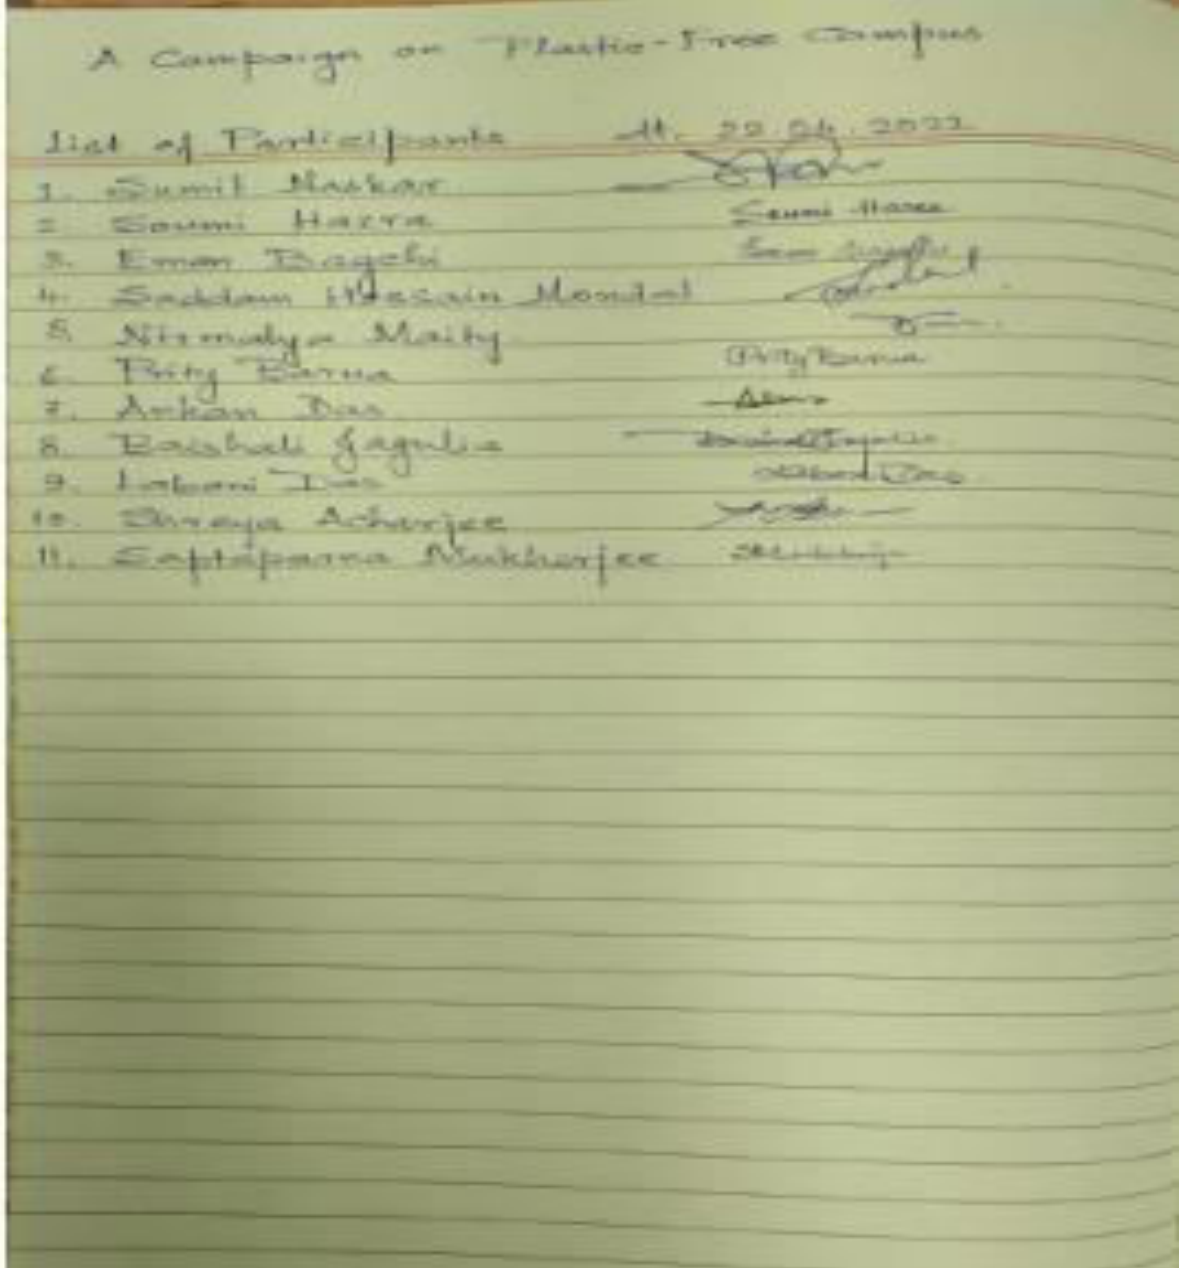 A Campaign on Plastic-Free Campus
List of Participants dt. 22.04.2022
1. Sumit Naskar
2 Soumi Hazra Soumi Hazra
3. Eman Bagchi
4. Saddam Hossain Mondal
5. Nirmalya Maity
6. Prity Barua Prity Barua
7. Ankan Das
8. Baishali Ganguli
9. Labani Das Labani Das
10. Shreya Acharjee
11. Saptaparna Mukherjee